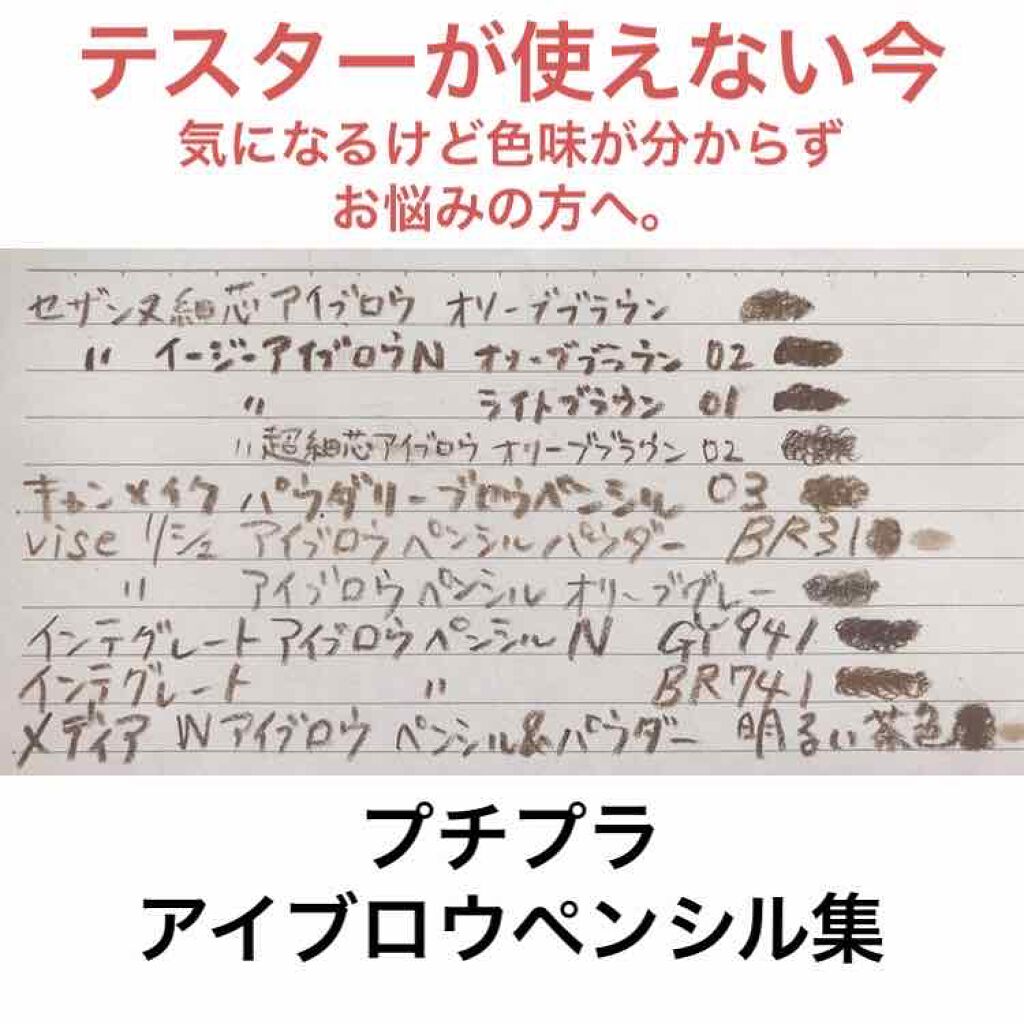 テスターが使えない今
気になるけど色味が分からず
お悩みの方へ。
セザンヌ細芯アイブロウ オリーブブラウン
〃 イージーアイブロウN オリーブブラウン 02
〃 ライトブラウン 01
〃超細芯アイブロウ オリーブブラウン 02
キャンメイク パウダリーブロウペンシル 03
vise リシェ アイブロウペンシルパウダー BR31
〃 アイブロウペンシル オリーブグレー
インテグレートアイブロウペンシルN GY941
インテグレート 〃 BR741
メディア Wアイブロウ ペンシル&パウダー 明るい茶色
プチプラ
アイブロウペンシル集